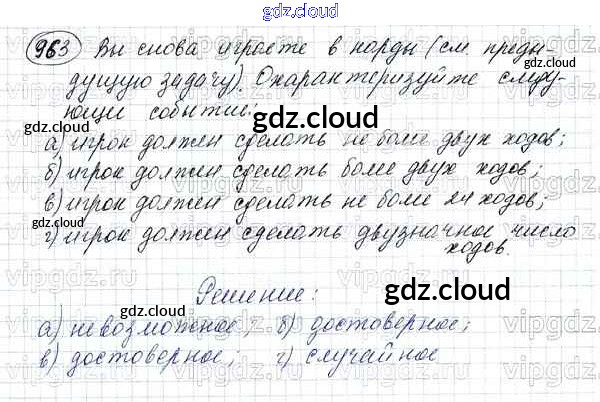 gdz.cloud
963 Вы снова играете в нарды (см. преды-
дущую задачу). Охарактеризуйте следу-
ющие событие:
а) игрок должен сделать не более двух ходов;
б) игрок должен сделать более двух ходов;
в) игрок должен сделать не более 24 ходов;
г) игрок должен сделать двузначное число
ходов.
Решение:
а) невозможное; б) достоверное;
в) достоверное; г) случайное